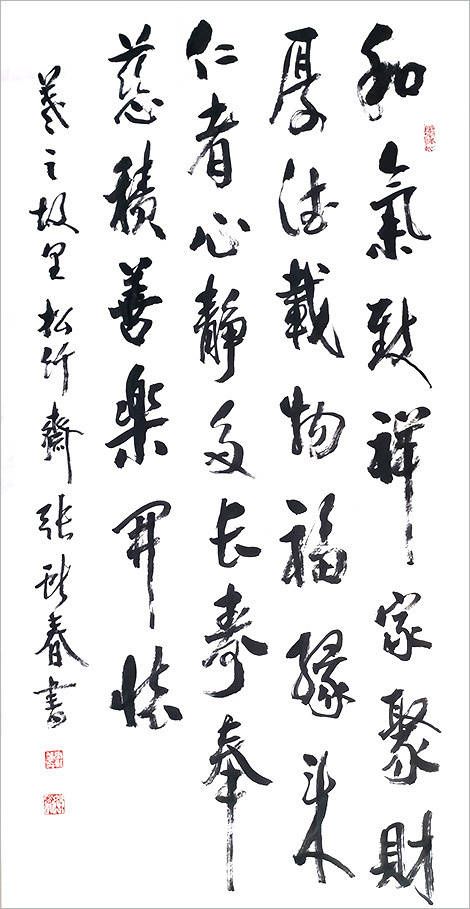 和氣致祥家聚財
厚德載物福緣来
仁者心静多长寿奉
慈積善樂開懷
羲之故里松竹齋張春書